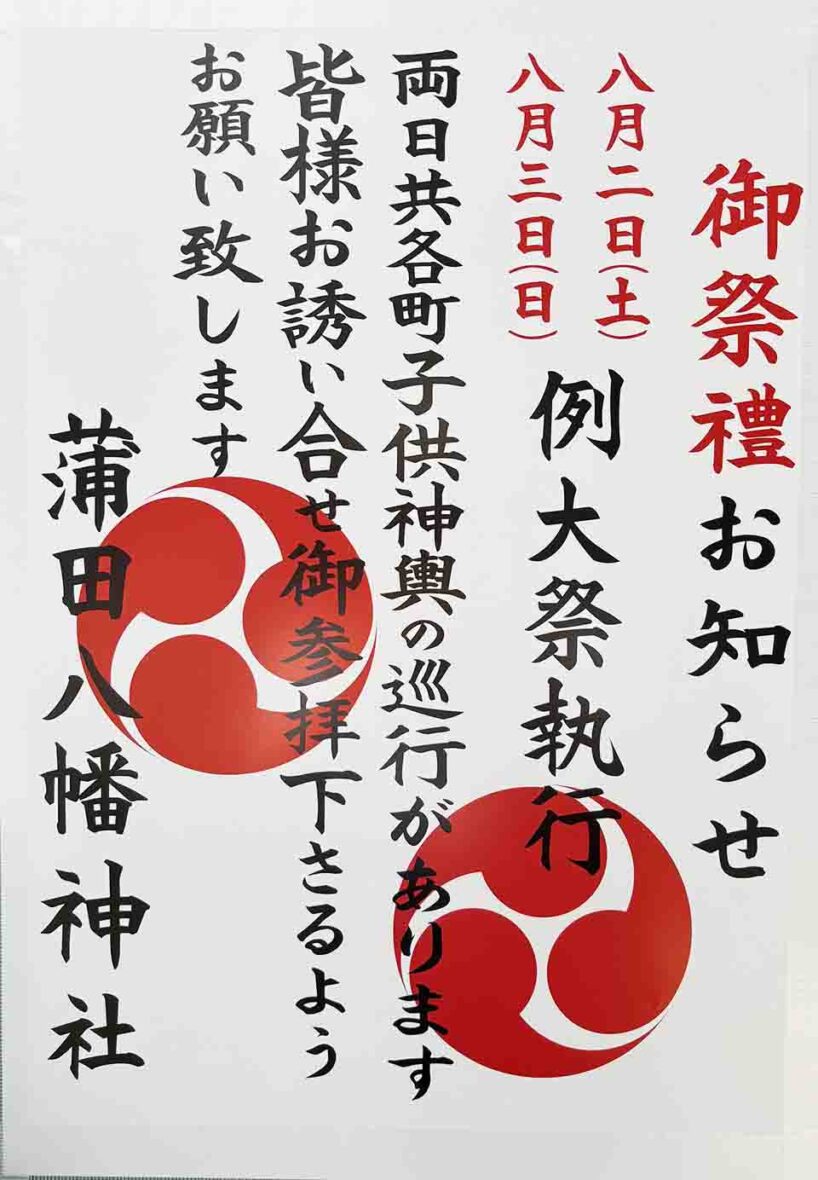 御祭禮お知らせ
八月二日(土)
八月三日(日)
例大祭執行
両日共各町子供神輿の巡行があります
皆様お誘い合せ御参拝下さるよう
お願い致します
蒲田八幡神社